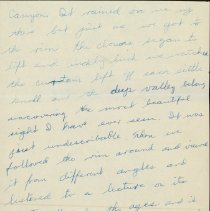 Canyon. It rained on us my
there but just as we got to
the rim the clouds began to
lift and really looked we watched
the curtain lift off each little
knoll and the deep valley below,
uncovering the most beautiful
sight I have ever seen. It was
just undescribable. Then we
followed the rim around and viewed
it from different angles and
listened to a lecture on its
the ages and is